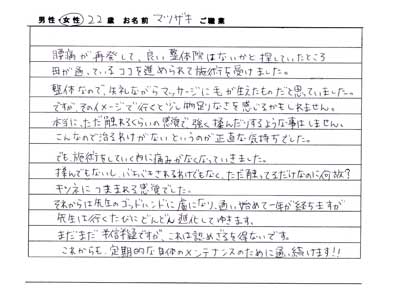 男性・女性 22歳 お名前 マツザキ ご職業
腰痛が再発して、良い整体院はないかと探していたところ
母が通っているココを進められて施術を受けました。
整体なので、失礼ながらマッサージに毛が生えたものだと思っていました。
ですが、そのイメージで行くと少し物足りなさを感じるかもしれません。
本当に、ただ触れるくらいの感覚で強く揉んだりするような事はしません。
こんなので治るわけがないというのが正直な気持ちでした。
でも、施術をしていく内に痛みがなくなっていきました。
揉んでもないし、バキバキされるわけでもなく、ただ触ってるだけなのに何故?
キツネにつままれる感覚でした。
それからは先生のゴッドハンドに虜になり、通い始めて一年が経ちますが
先生は行くたびにどんどん進化してゆきます。
まだまだ半信半疑ですが、これは認めざるを得ないです。
これからも、定期的な身体のメンテナンスのために通い続けます!!